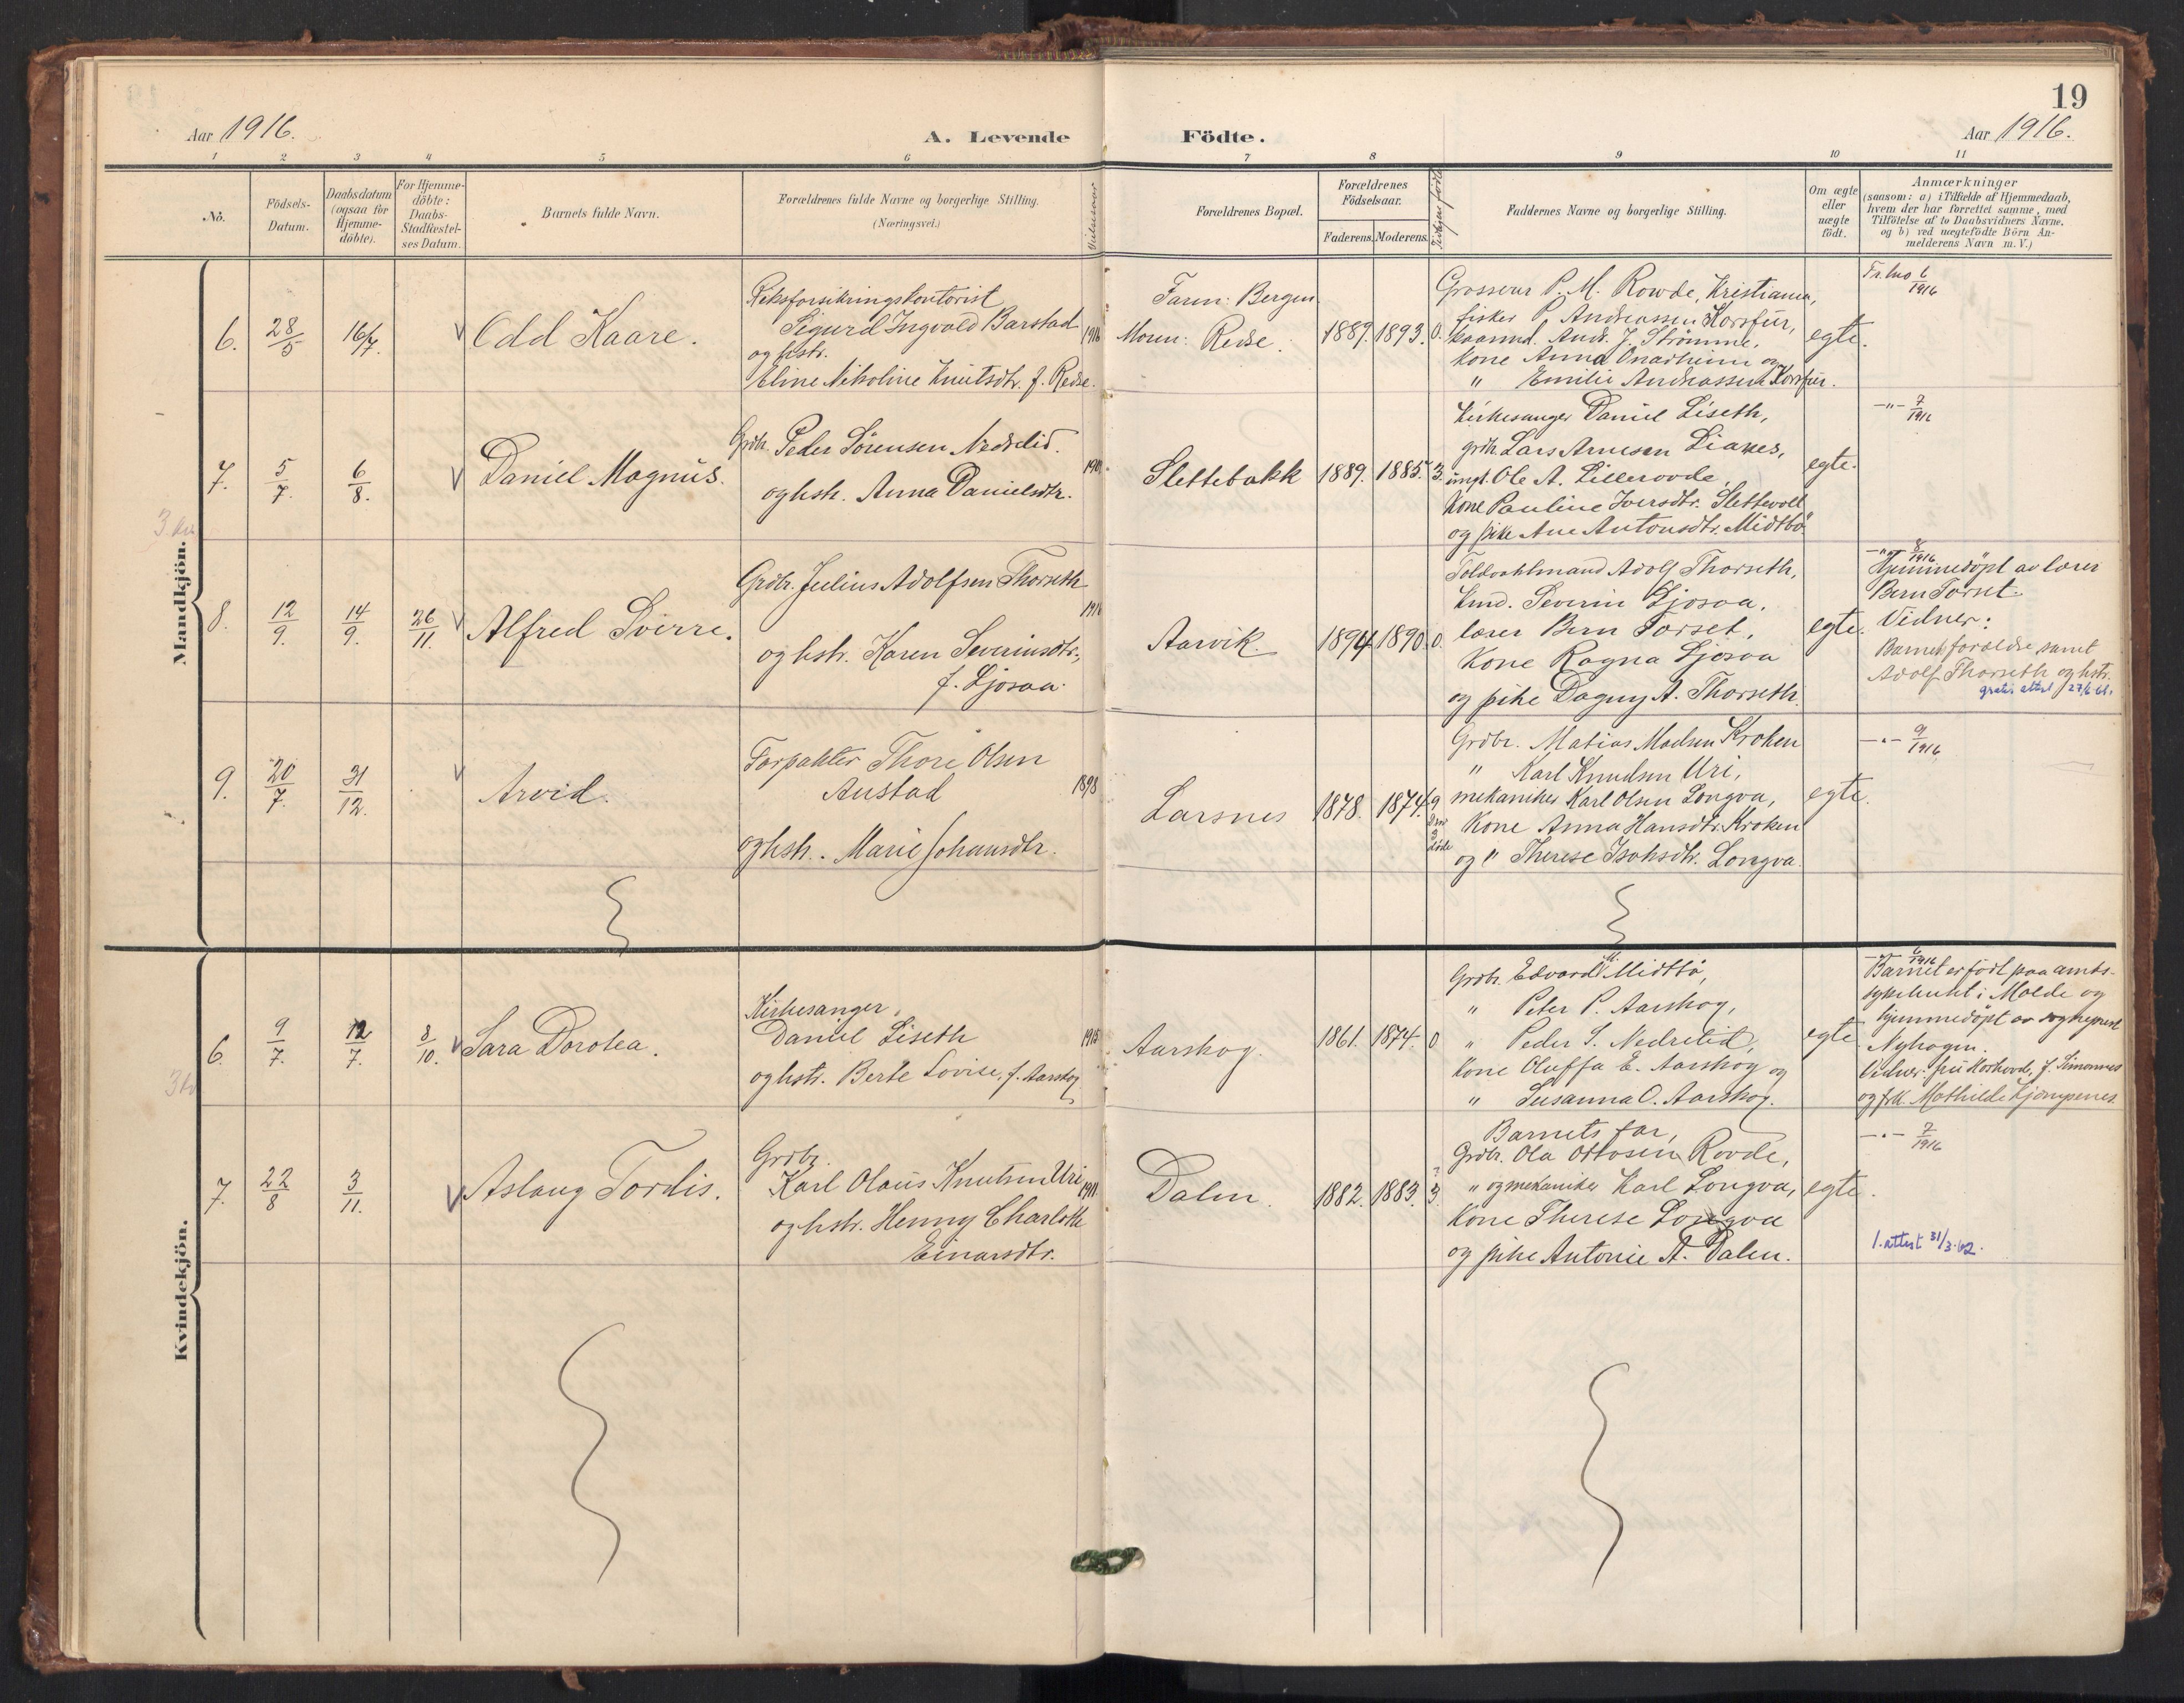 19
Aar 1916.
A. Levende Födte.
Aar 1916.
1 2 3 4 5 6 7 8 9 10 11
No.
Födsels-
Datum.
Daabsdatum
(ogsaa for
Hjemme-
döbte).
For Hjemme-
döbte:
Daabs-
Stadfæstel-
ses Datum.
Barnets fulde Navn.
Forældrenes fulde Navne og borgerlige Stilling.
(Næringsvei.)
Vielsesaar
Forældrenes Bopæl.
Forældrenes
Födselsaar.
Faderens. Moderens.
Faddernes Navne og borgerlige Stilling.
Om ægte
eller
uægte
født.
Anmærkninger
(saasom: a) i Tilfælde af Hjemmedaab,
hvem der har forrettet samme, med
Tilföielse af to Daabsvidners Navne,
og b) ved uægtefödte Börn An-
melderens Navn m. V.)
Mandkjön.
6.
28/5
16/7.
Odd Kaare.
Sigurd Ingvald Barstad
og hstr.
Eline Nikoline Knutsdtr. f. Redse.
1916
Faren: Bergen.
Moren: Redse.
1889. 1893. 0.
P. M. Rovde, Kristiania,
fisker P. Andreassen
Andr. J. Strømme,
kone Anna
" Emilie Andreassen
egte.
6/1916
7.
5/7.
6/8.
Daniel Magnus.
Grdbr. Peder Sörensen Nedrelid.
og hstr. Anna Danielsdtr.
Slettebakk
1889. 1885. 3
Kirkesanger Daniel Liseth,
grdbr. Lars Arnesen Lianes,
ungk. Ole A. Lillerovde,
kone Pauline Iversdtr. Slettevoll
og pike Ane Antonsdtr. Midtbö
egte.
-"- 7/1916
8.
12/9.
14/9.
26/11.
Alfred Sverre.
Grdbr. Julius Adolfsen Thorseth
og hstr. Karen Severinsdtr.,
f. Ljosaa.
1916
Aarvik.
1894 1890 0.
Adolf Thorseth,
Severin Ljosaa,
lærer Bern Torset,
Kone Ragna Ljosaa
og pike Dagny A. Thorseth.
egte.
-"- 8/1916
Hjemmedöpt av lærer
Bern Torset.
Vidner:
Barnets foreldre samt
Adolf Thorseth og hstr.
gratis attest 27/6 61.
9.
20/7.
31/12.
Arvid.
Forpakter Thore Olsen
Austad
og hstr. Marie Johansdtr.
1898
Larsnes
1878. 1874. 9
Grdbr. Matias Madsen Kroken
" Karl Knudsen Uri,
mekaniker Karl Olsen Longva,
Kone Anna Hansdtr. Kroken
og " Therese Longva.
egte.
-"- 9/1916
Kvindekjön.
6.
9/7.
12/7.
8/10.
Sara Dorotea.
Kirkesanger
Daniel Liseth
og hstr. Berte Lovise, f. Aarskog
1915
Aarskog.
1861. 1874. 0
Grdbr. Edvard Midtbö,
" Peter P. Aarskog,
" Peder S. Nedrelid,
Kone Oluffa E. Aarskog og
" Susanna O. Aarskog.
egte
6/1916
Barnet er født paa amts-
sykehuset i Molde og
hjemmedöpt av sogneprest
Nyhagen.
Vidner: fru f. Simonnes
og frk. Mathilde
7.
22/8
3/11.
Aslaug Tordis.
Grdbr.
Karl Olaus Knutsen Uri
og hstr. Henny Charlotte
Einarsdtr.
1911.
Dalen.
1882. 1883. 3
Barnets far,
Grdbr. Ola Ottosen Rovde,
" og mekaniker Karl Longva,
Kone Therese Longva
og pike Antonie A. Dalen.
egte.
-"- 7/1916
1. attest 31/3-62.